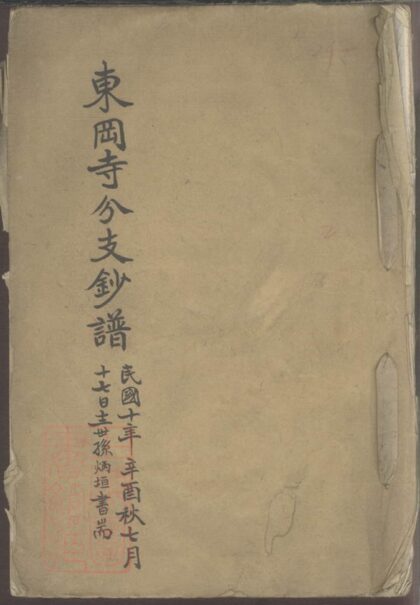 東岡寺分支鈔譜
民國十年辛酉秋七月
十七日世孫炳垣書耑